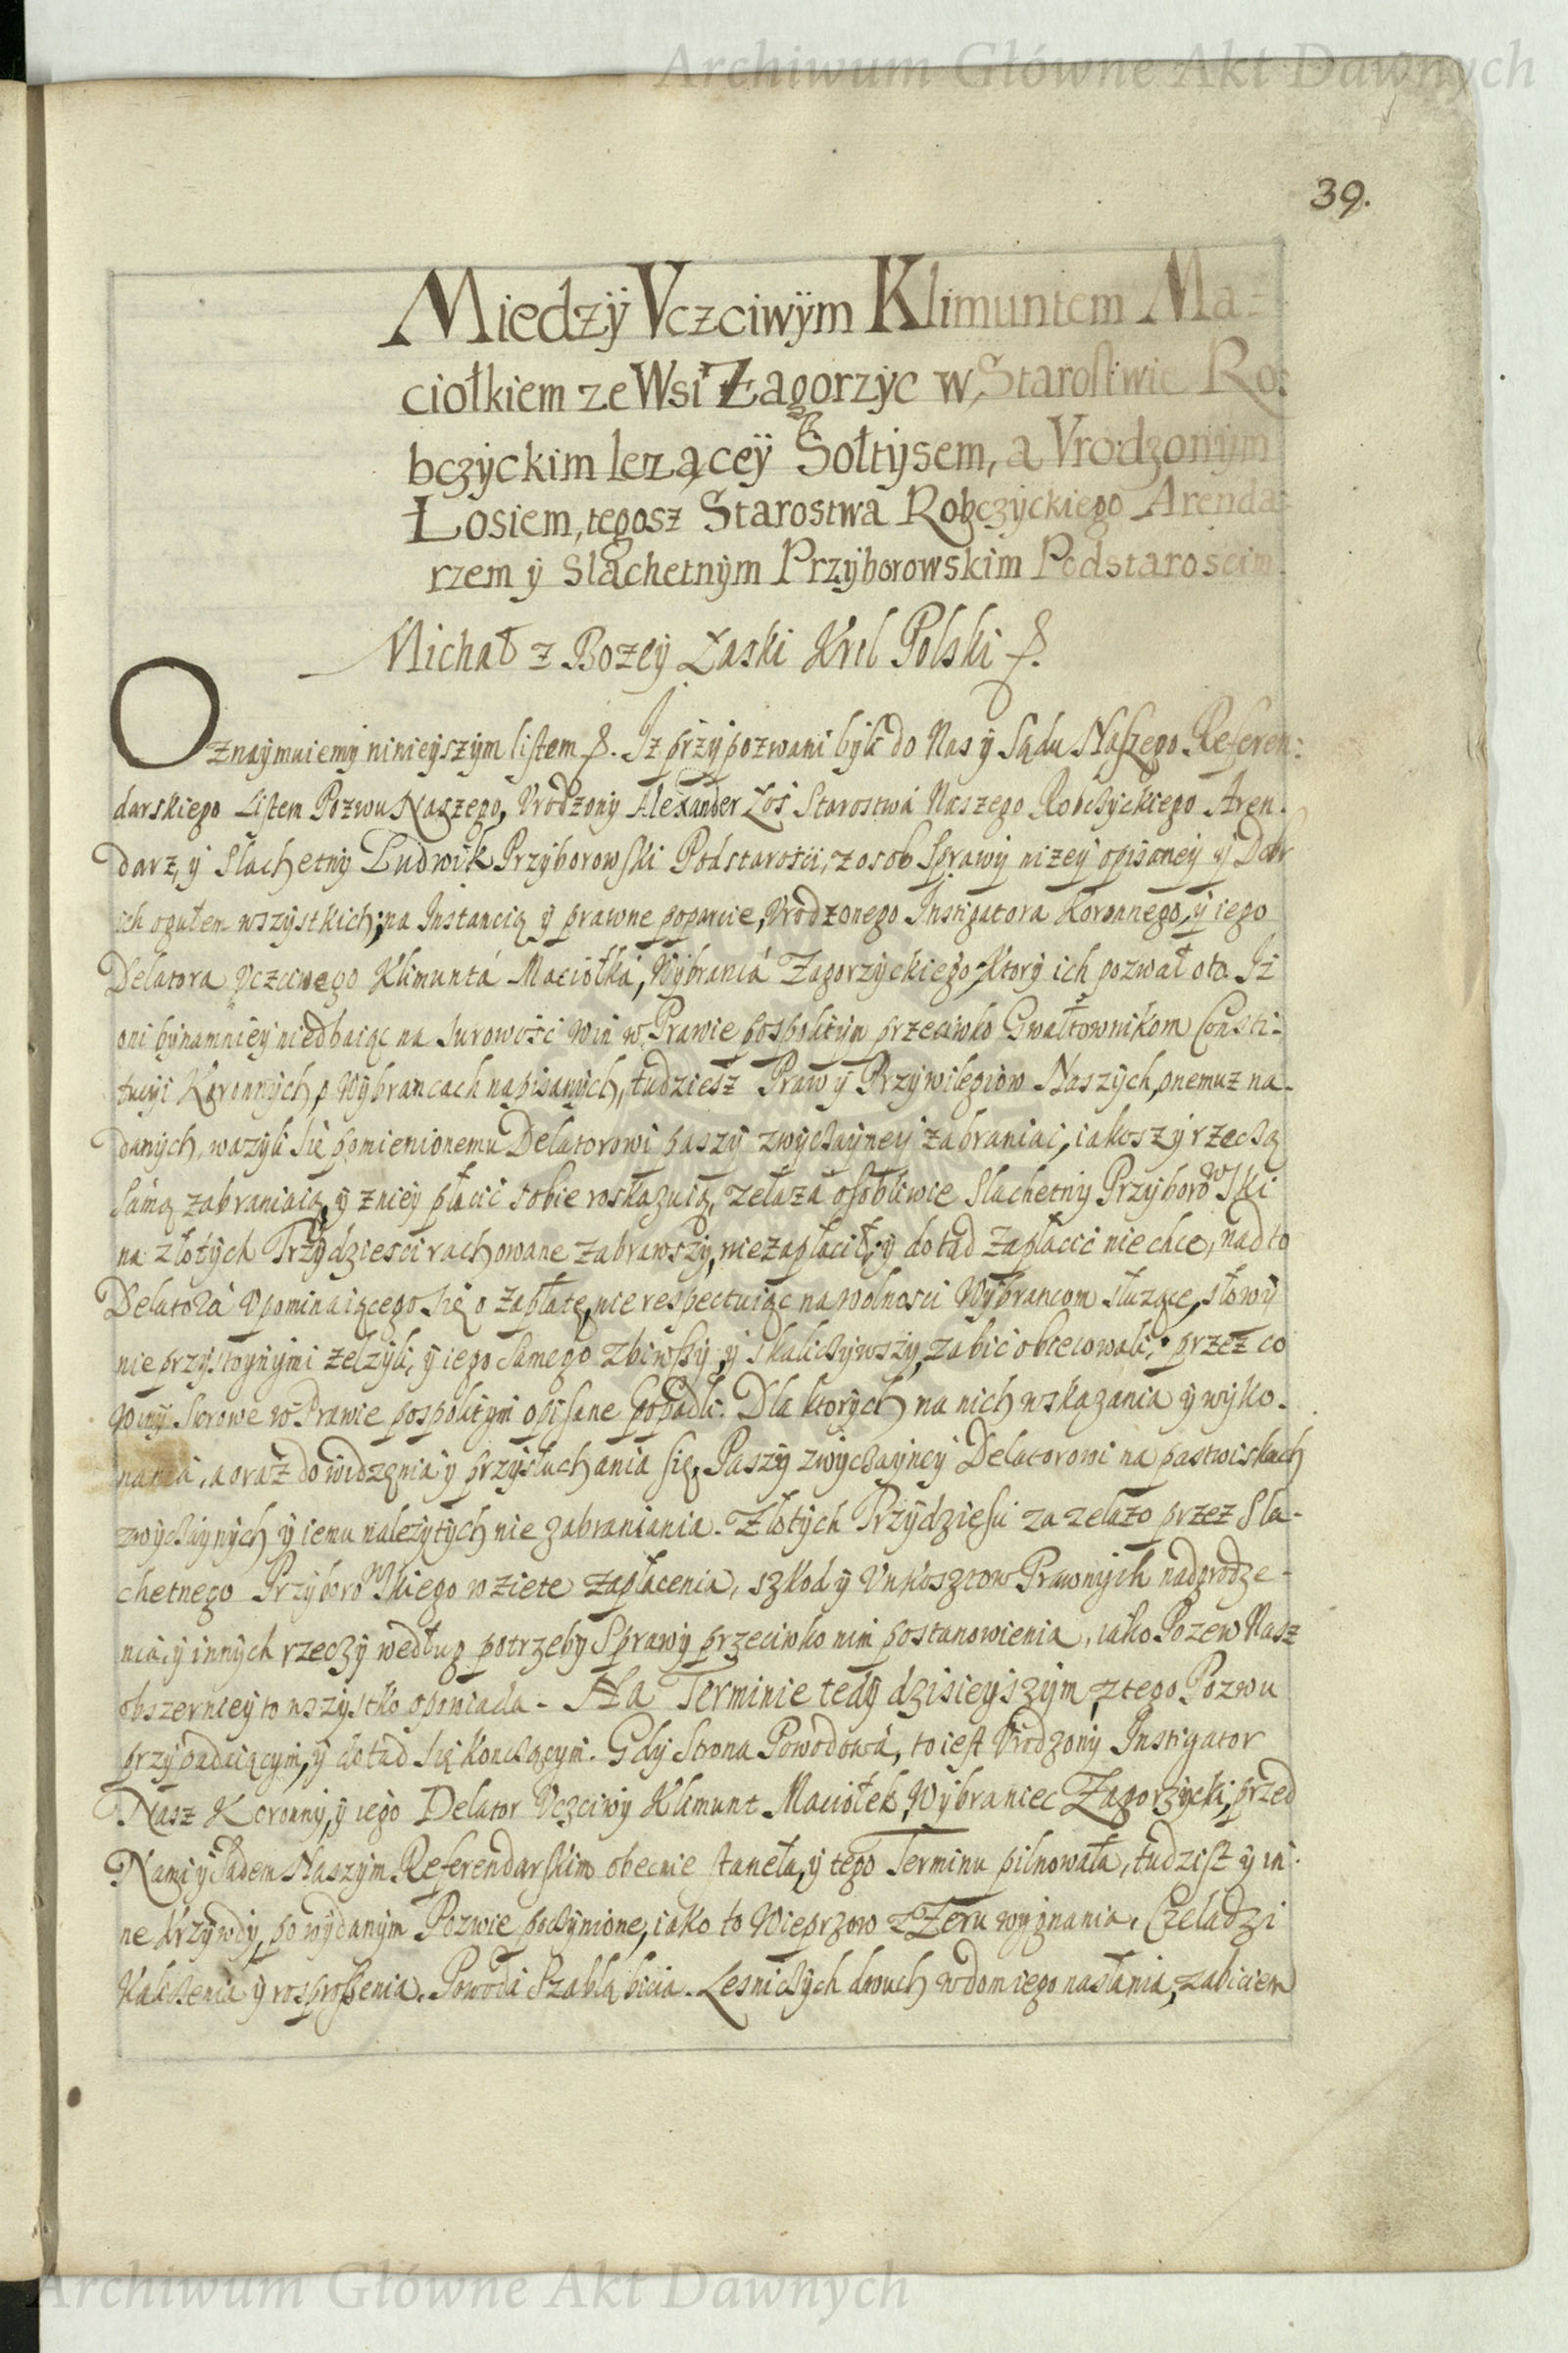 Archiwum Główne Akt Dawnych
39.
Miedzÿ Vczciwÿm Klimuntem Ma=
ciołkiem ze Wsi Zagorzyc w Starostwie Ro:
bczÿckim lezącey Sołtÿsem, a Vrodzonÿm
Łosiem, tegosz Starostwa Robczÿckiego Arenda:
rzem ÿ Slachetnÿm Przÿborowskim Podstaroscim.
Michał z Bozeÿ Łaski Krol Polski
Oznaÿmuiemÿ ninieÿszÿm listem. Iz przÿpozwani bÿli do Nas ÿ Sądu Naszego Referen:
darskiego Listem Pozwu Naszego, Vrodzonÿ Alexander Łoś Starostwá Naszego Robczÿckiego Aren.
darz, ÿ Slachetnÿ Ludwik Przÿborowski Podstarości, z osob Sprawÿ nizeÿ opisaneÿ ÿ Dobr
ich ogułem wszÿstkich; na Instancią ÿ prawne poparcie, Vrodzonego Instigatora Koronnego, ÿ iego
Delatora Vczciwego Klimuntá Maciołká, Wÿbrańcá Zagorzÿckiego, Ktorÿ ich pozwał oto. Iż
oni bÿnamnieÿ niedbaiąc na Surowość Win w Prawie pospolitÿm przeciwko Gwałtownikom Consti-
tucÿi Koronnÿch, o Wÿbrancach napisanÿch, tudziesz Praw ÿ Przÿwilegiow Naszÿch, onemuz na-
danÿch, wazÿli się pomienionemu Delatorowi paszÿ zwÿczaÿneÿ zabraniać, iakosz ÿ rzeczą
samą zabraniaią, ÿ znieÿ płacić sobie roskazuią, zelaza osobliwie Slachetnÿ Przÿborowski
na złotÿch Trzÿdziesci rachowane zabrawszÿ, niezapłacił, ÿ dotąd zapłacić niechce, nadto
Delatorá Vpominaiącego się o zapłatę, nierespectuiąc na wolnosci Wÿbrancom słuzące, słowÿ
nieprzÿstoÿnÿmi zelzÿli, ÿ iego samego zbiwszÿ, ÿ skaliczÿwszÿ, zabić obiecowali, przez co
winÿ Surowe w Prawie pospolitÿm opisane popadli. Dla ktorÿch na nich wskazania ÿ wÿko-
nania, a oraz do widzenia ÿ przÿsłuchania się, Paszÿ zwÿczaÿneÿ Delatorowi na pastwiskach
zwÿczaÿnÿch ÿ iemu nalezÿtÿch nie zabraniania. Złotÿch Trzÿdziesci za zelazo przez Sla-
chetnego Przÿborowskiego wziete zapłacenia, szkod ÿ Vnkosztow Prawnÿch nadgrodze-
nia, ÿ innÿch rzeczÿ według potrzebÿ Sprawÿ przeciwko nim postanowienia, iako Pozew Nasz
obszernieÿ to wszÿstko opowiada. Na Terminie tedÿ dzisieÿszÿm, z tego Pozwu
przÿpadaiącÿm, ÿ dotąd się konczącÿm. Gdÿ Strona Powodowá, to iest Vrodzonÿ Instigator
Nasz Koronnÿ, ÿ iego Delator Vczciwÿ Klimunt Maciołek, Wÿbraniec Zagorzÿcki, przed
Nami ÿ Sądem Naszÿm Referendarskim obecnie staneła, ÿ tego Terminu pilnowała, tudzisz ÿ in-
ne krzÿwdÿ, po wÿdanÿm Pozwie poczÿnione, iako to Wieprzow z Zeru wÿgnania, Czeladzi
kaliczenia ÿ rosproszenia, Powoda Szablą bicia. Lesniczÿch dwuch w dom iego nasłania, zabiciem
Archiwum Główne Akt Dawnych